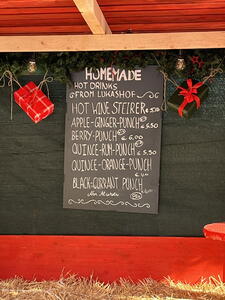 HOMEMADE
HOT DRINKS
FROM LUKASHOF
HOT WINE STEIRER €5,50
APPLE-GINGER-PUNCH €5,50
BERRY-PUNCH €6,00
QUINCE-RUM-PUNCH €5,50
QUINCE-ORANGE-PUNCH
BLACK-CURRANT PUNCH